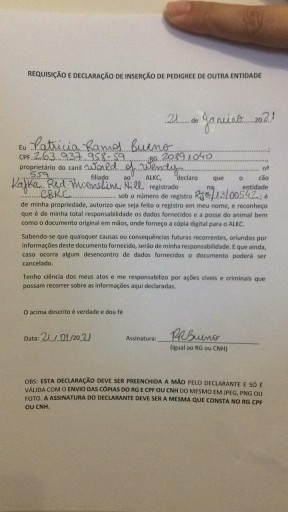 REQUISIÇÃO E DECLARAÇÃO DE INSERÇÃO DE PEDIGREE DE OUTRA ENTIDADE
21 de Janeiro 2021
Eu Patricia Ramos Bueno
CPF 263.937.958-59 RG 20891040
proprietário do canil World of Wendy nº
559 filiado ao ALKC, declaro que o cão
Kafka Red Moonshine Hill registrado na entidade
CBKC sob o número de registro /13/00542, é
de minha propriedade, autorizo que seja feito o registro em meu nome, e reconheço
que é de minha total responsabilidade os dados fornecidos e a posse do animal bem
como o documento original em mãos, onde forneço a cópia digital para o ALKC.
Sabendo-se que quaisquer causas ou consequências futuras recorrentes, oriundos por
informações deste documento fornecido, serão de minha responsabilidade. E que ainda,
caso ocorra algum desencontro de dados fornecidos o documento poderá ser
cancelado.
Tenho ciência dos meus atos e me responsabilizo por ações cíveis e criminais que
possam recorrer sobre as informações aqui declaradas.
O acima descrito é verdade e dou fé
Data: 21/01/2021 Assinatura: PRBueno
(Igual ao RG ou CNH)
OBS: ESTA DECLARAÇÃO DEVE SER PREENCHIDA A MÃO PELO DECLARANTE E SÓ É
VÁLIDA COM O ENVIO DAS CÓPIAS DO RG E CPF OU CNH DO MESMO EM JPEG, PNG OU
FOTO. A ASSINATURA DO DECLARANTE DEVE SER A MESMA QUE CONSTA NO RG CPF
OU CNH.